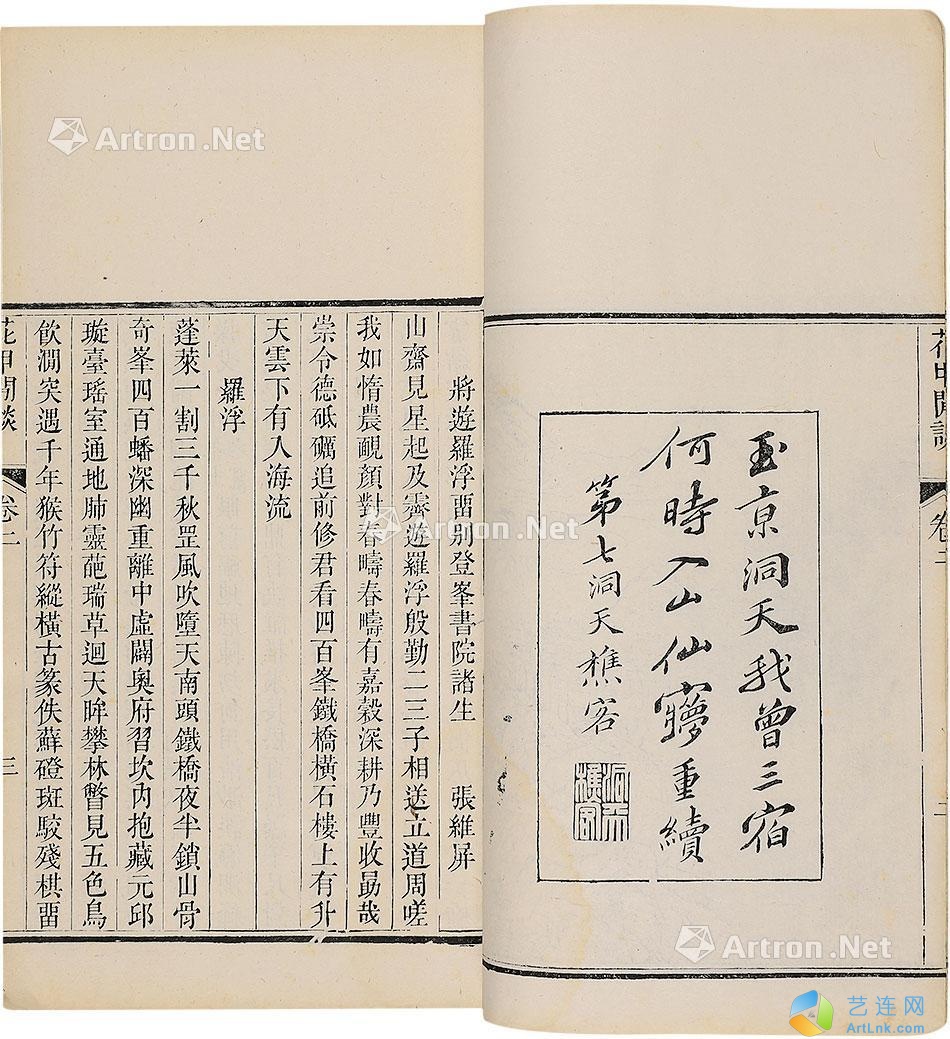 花甲閒談
卷二
二
玉京洞天我曾三宿
何時入山仙夢重續
第七洞天樵客
洞天樵客
將遊羅浮畱別登峯書院諸生 張維屏
山齋見星起及霽遊羅浮殷勤二三子相送立道周嗟
我如惰農靦顏對春疇春疇有嘉穀深耕乃豐收勗哉
崇令德砥礪追前修君看四百峯鐵橋橫石樓上有升
天雲下有入海流
羅浮
蓬萊一割三千秋罡風吹墮天南頭鐵橋夜半鎖山骨
奇峯四百蟠深幽重離中虛闢奥府習坎內抱藏元邱
璇臺瑶室通地肺靈葩瑞草迴天眸攀林瞥見五色鳥
飮澗突遇千年猴竹符縱橫古篆佚蘚磴斑駮殘棋畱
花甲閒談
卷二
三
Artron.Net
Artron.Net
Artron.Net
艺连网
ArtLnk.com